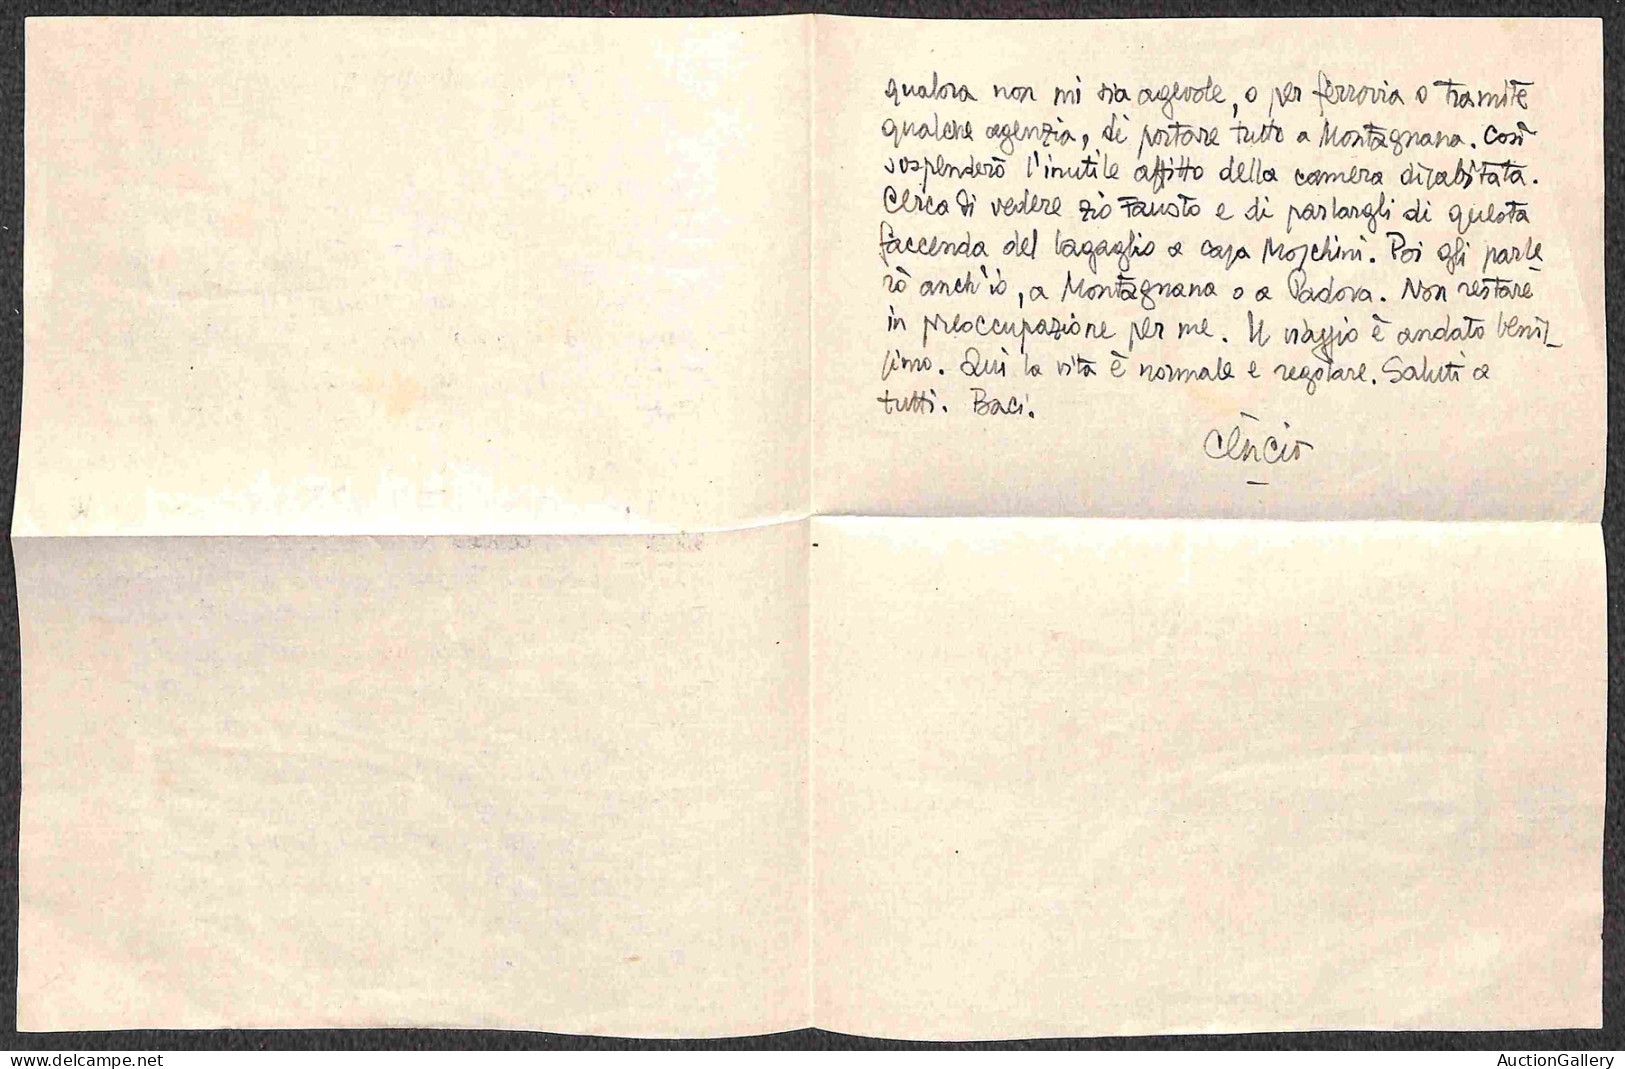 qualora non mi sia agevole, o per ferrovia o tramite
qualche agenzia, di portare tutto a Montagnana. Così
sospenderò l'inutile affitto della camera disabitata.
Cerca di vedere zio Fausto e di parlargli di questa
faccenda del bagaglio a casa Moschini. Poi gli parle_
rò anch'io, a Montagnana o a Padova. Non restare
in preoccupazione per me. Il viaggio è andato benis_
simo. Qui la vita è normale e regolare. Saluti a
tutti. Baci.
Cencio
delcampe.net
AuctionGallery